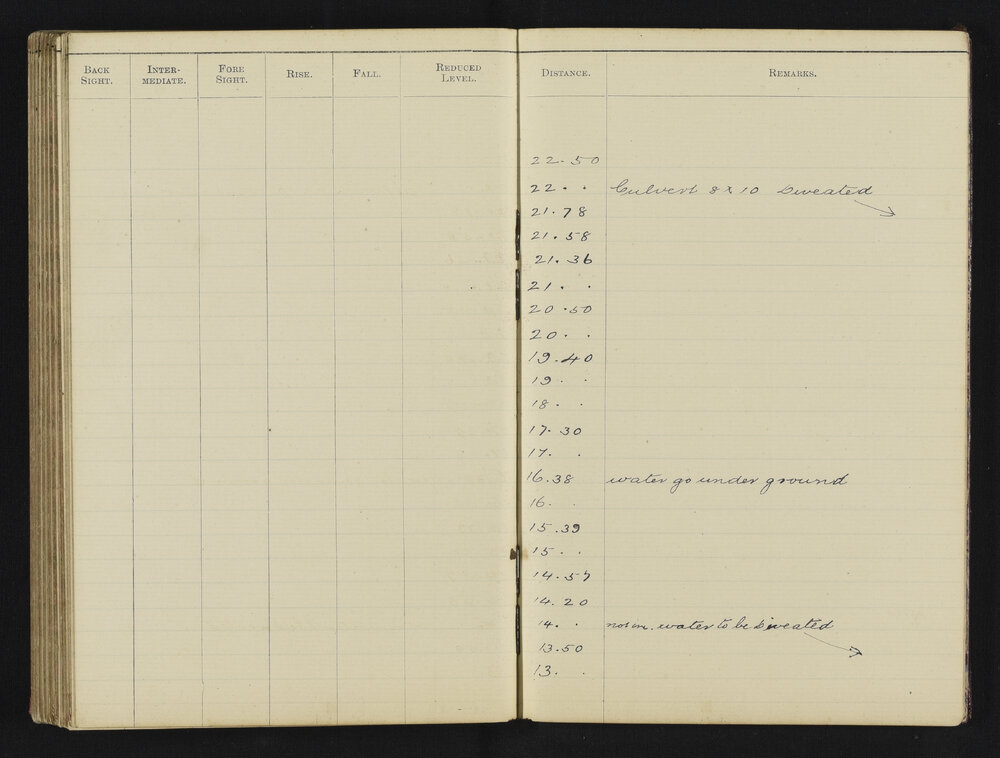 BACK SIGHT. INTER- MEDIATE. FORE SIGHT. RISE. FALL. REDUCED LEVEL. DISTANCE. REMARKS.
22.50
22 . . Culvert 8 x 10 Diveated
21.78
21.58
21.36
21 . .
20.50
20 . .
19.40
19 . .
18 . .
17.30
17 . .
16.38 water go under ground
16 . .
15.39
15 . .
14.57
14.20
14 . . water to be Diveated
13.50
13 . .